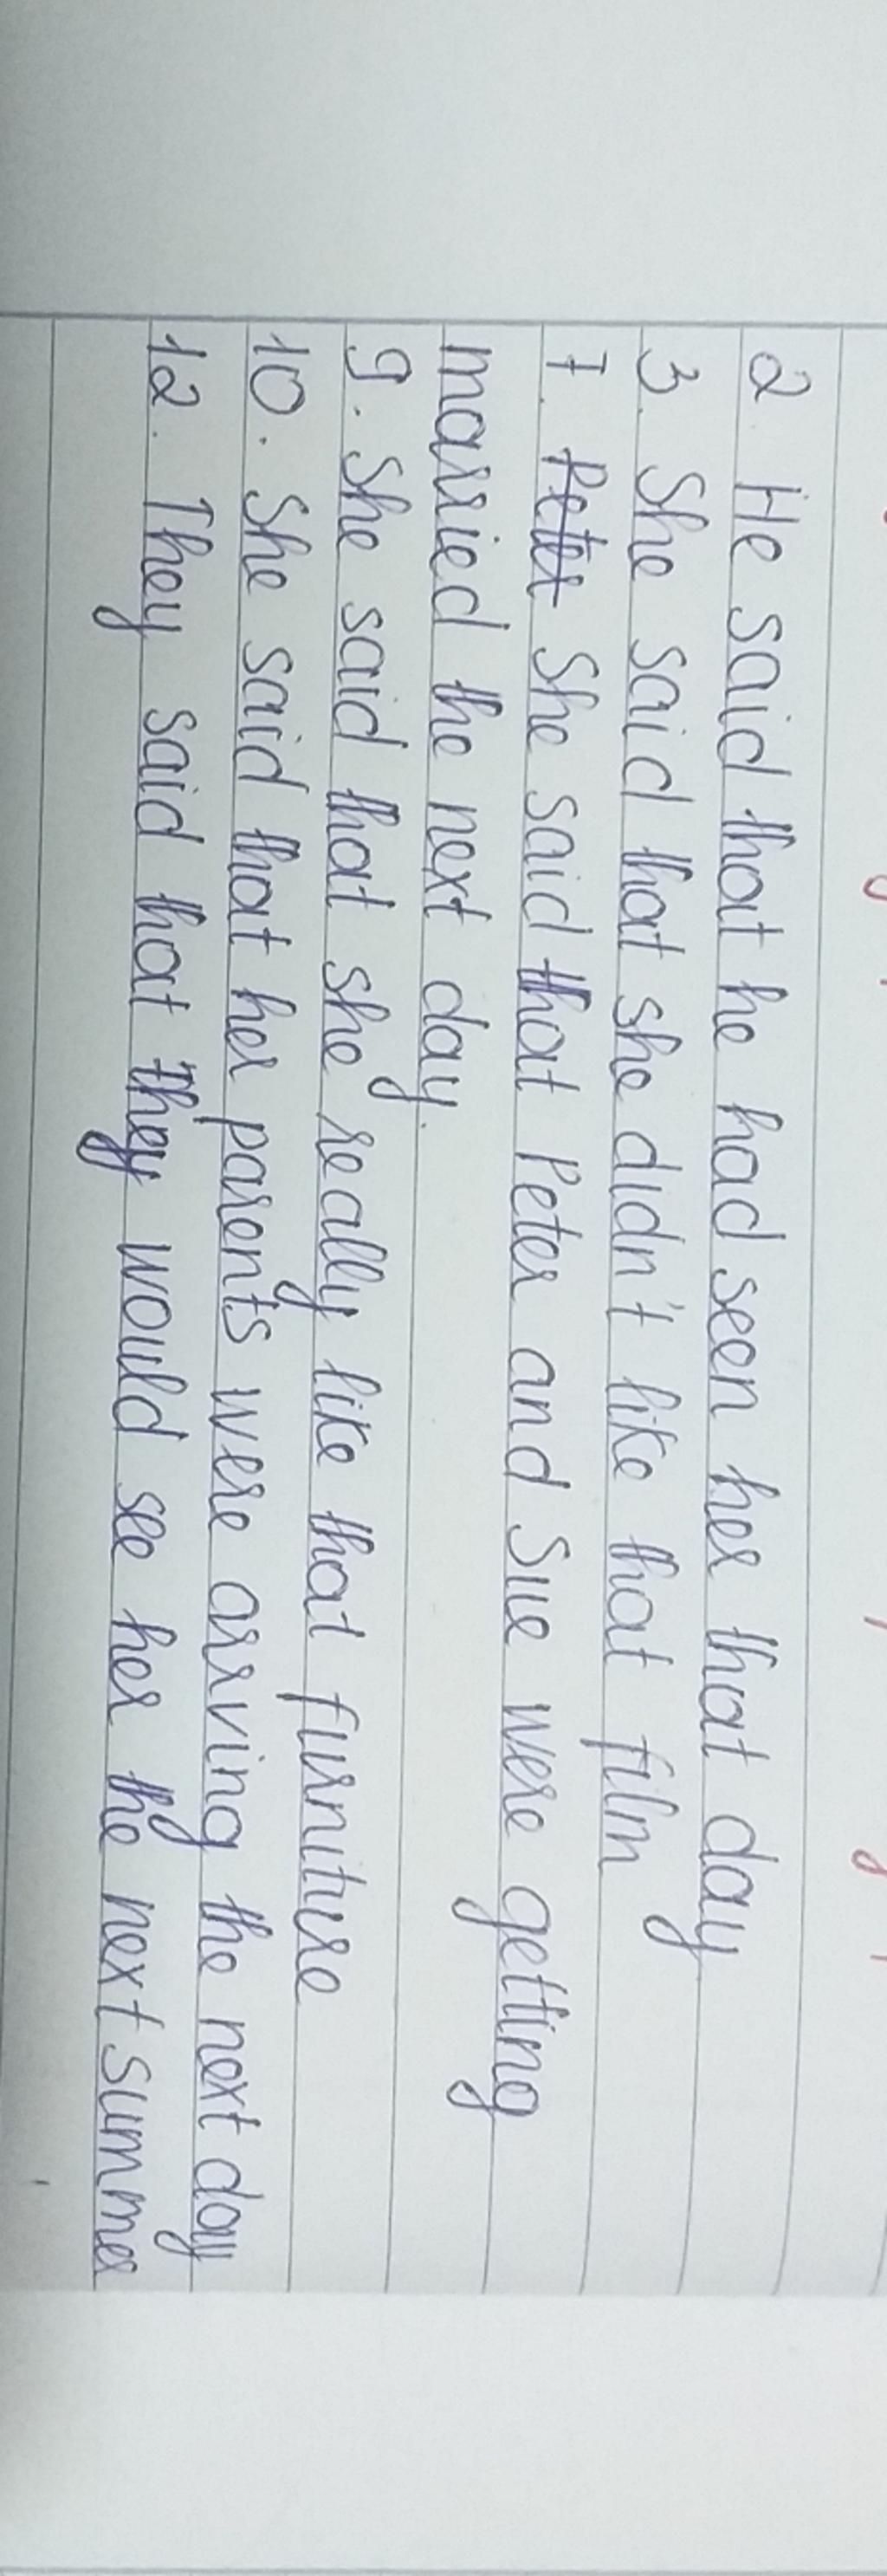 2 He said that he had seen her that day
3. She said that she didn't like that film
7. Peter She said that Peter and Sue were getting
married the next day.
9. She said that she really like that furniture
10. She said that her parents were arrving the next day
12. They said that they would see her the next summer